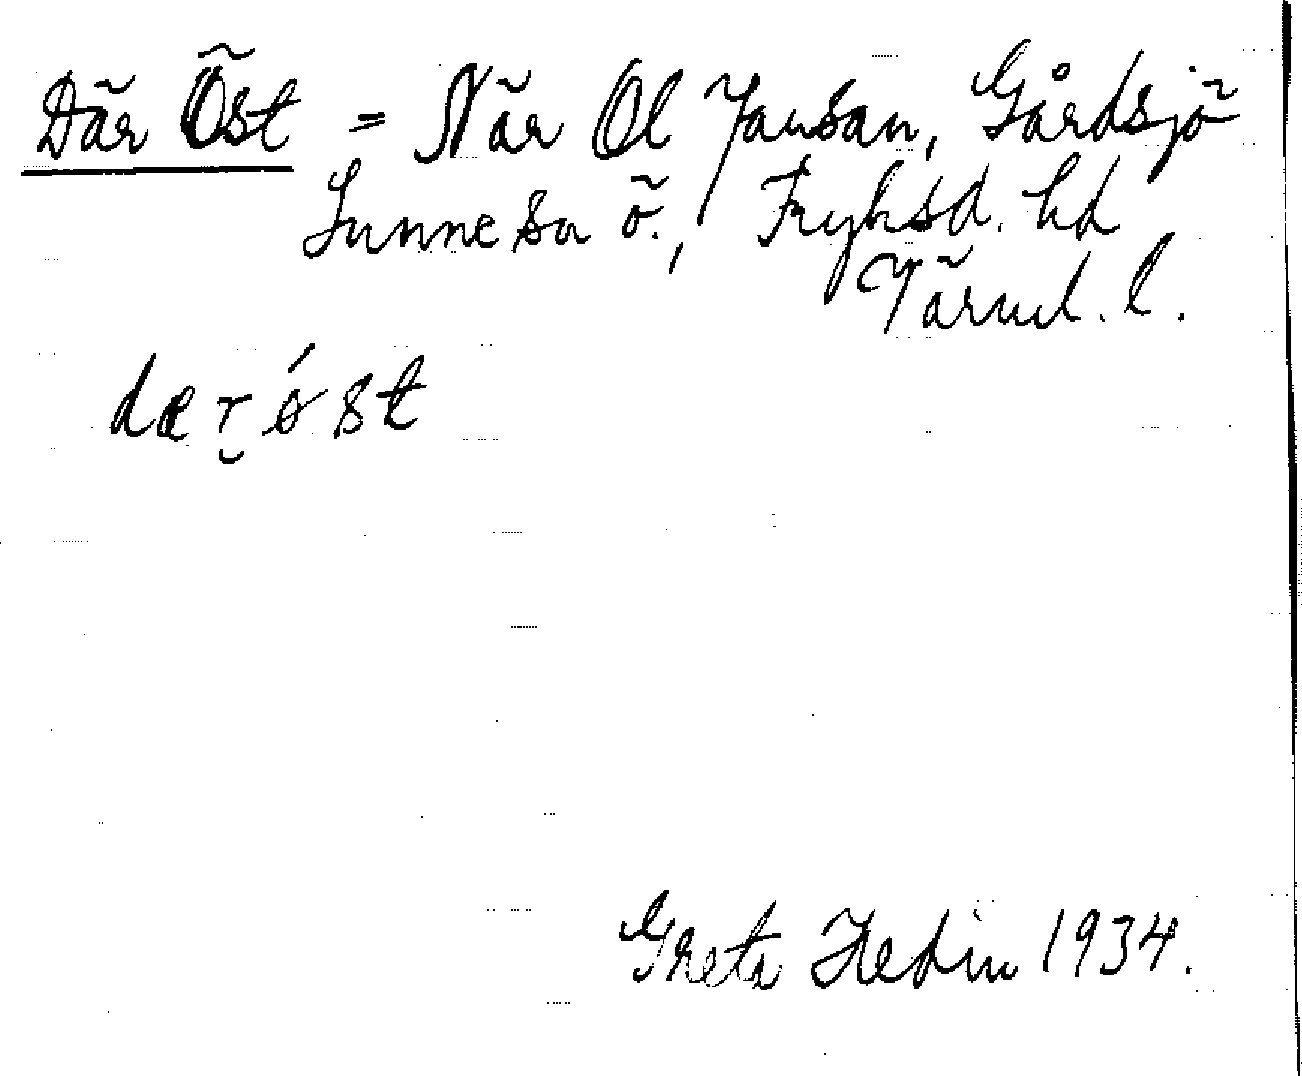 Där Öst = När Ol Jansan, Gårdsjö
Sunne sn ö., Fryksd. hd
Värml. l.
dær öst
Greta Hedin 1934.